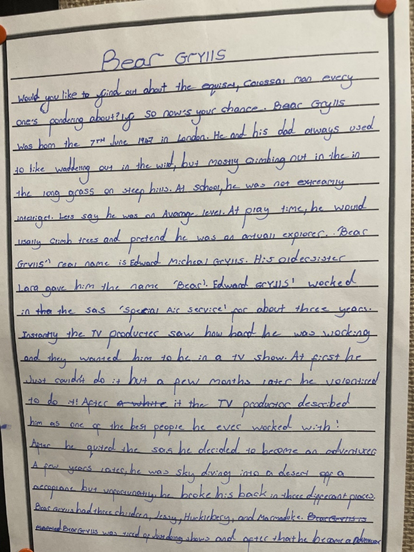 Bear Grylls
Would you like to find out about the equiset, Colossal man every
one's pondering about? If so now's your chance. Bear Grylls
was born the 7TH June 1967 in London. He and his dad always used
to like waddering out in the wild, but mostly climbing out in the in
the long grass on steep hills. At school, he was not extreamly
inteliget. Lets say he was on Average level. At play time, he would
usally climb trees and pretend he was an actuall explorer. "Bear
Grylls" real name is Edward Micheal Grylls. His oldersister
Lara gave him the name 'Bear'. Edward Grylls' worked
in the sas 'Special Air service' for about three years.
Instantly the TV producter saw how hard he was working
and they wanted him to be in a TV show. At first he
Just couldn't do it but a few months later he volonticed
to do it! After it the TV productor described
him as one of the best people he ever worked with!
After he quited the sas he decided to become an adventurer
A few years later, he was sky diving into a desert off a
aeroplane but unfortunatly he broke his back in three different places.
Bear Grylls had three chidren, Jessy, Huckleberg, and Marmadike.
Bear Grylls was tired of doing shows and after that he became a